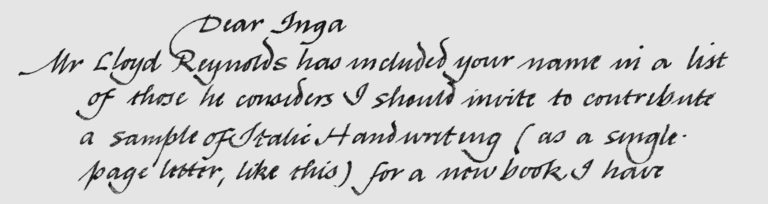 Dear Inga
Mr Lloyd Reynolds has included your name in a list
of those he considers I should invite to contribute
a sample of Italic Handwriting (as a single-
page letter, like this) for a new book I have